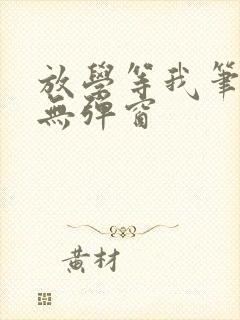 放學等我筆
無彈窗
黃材